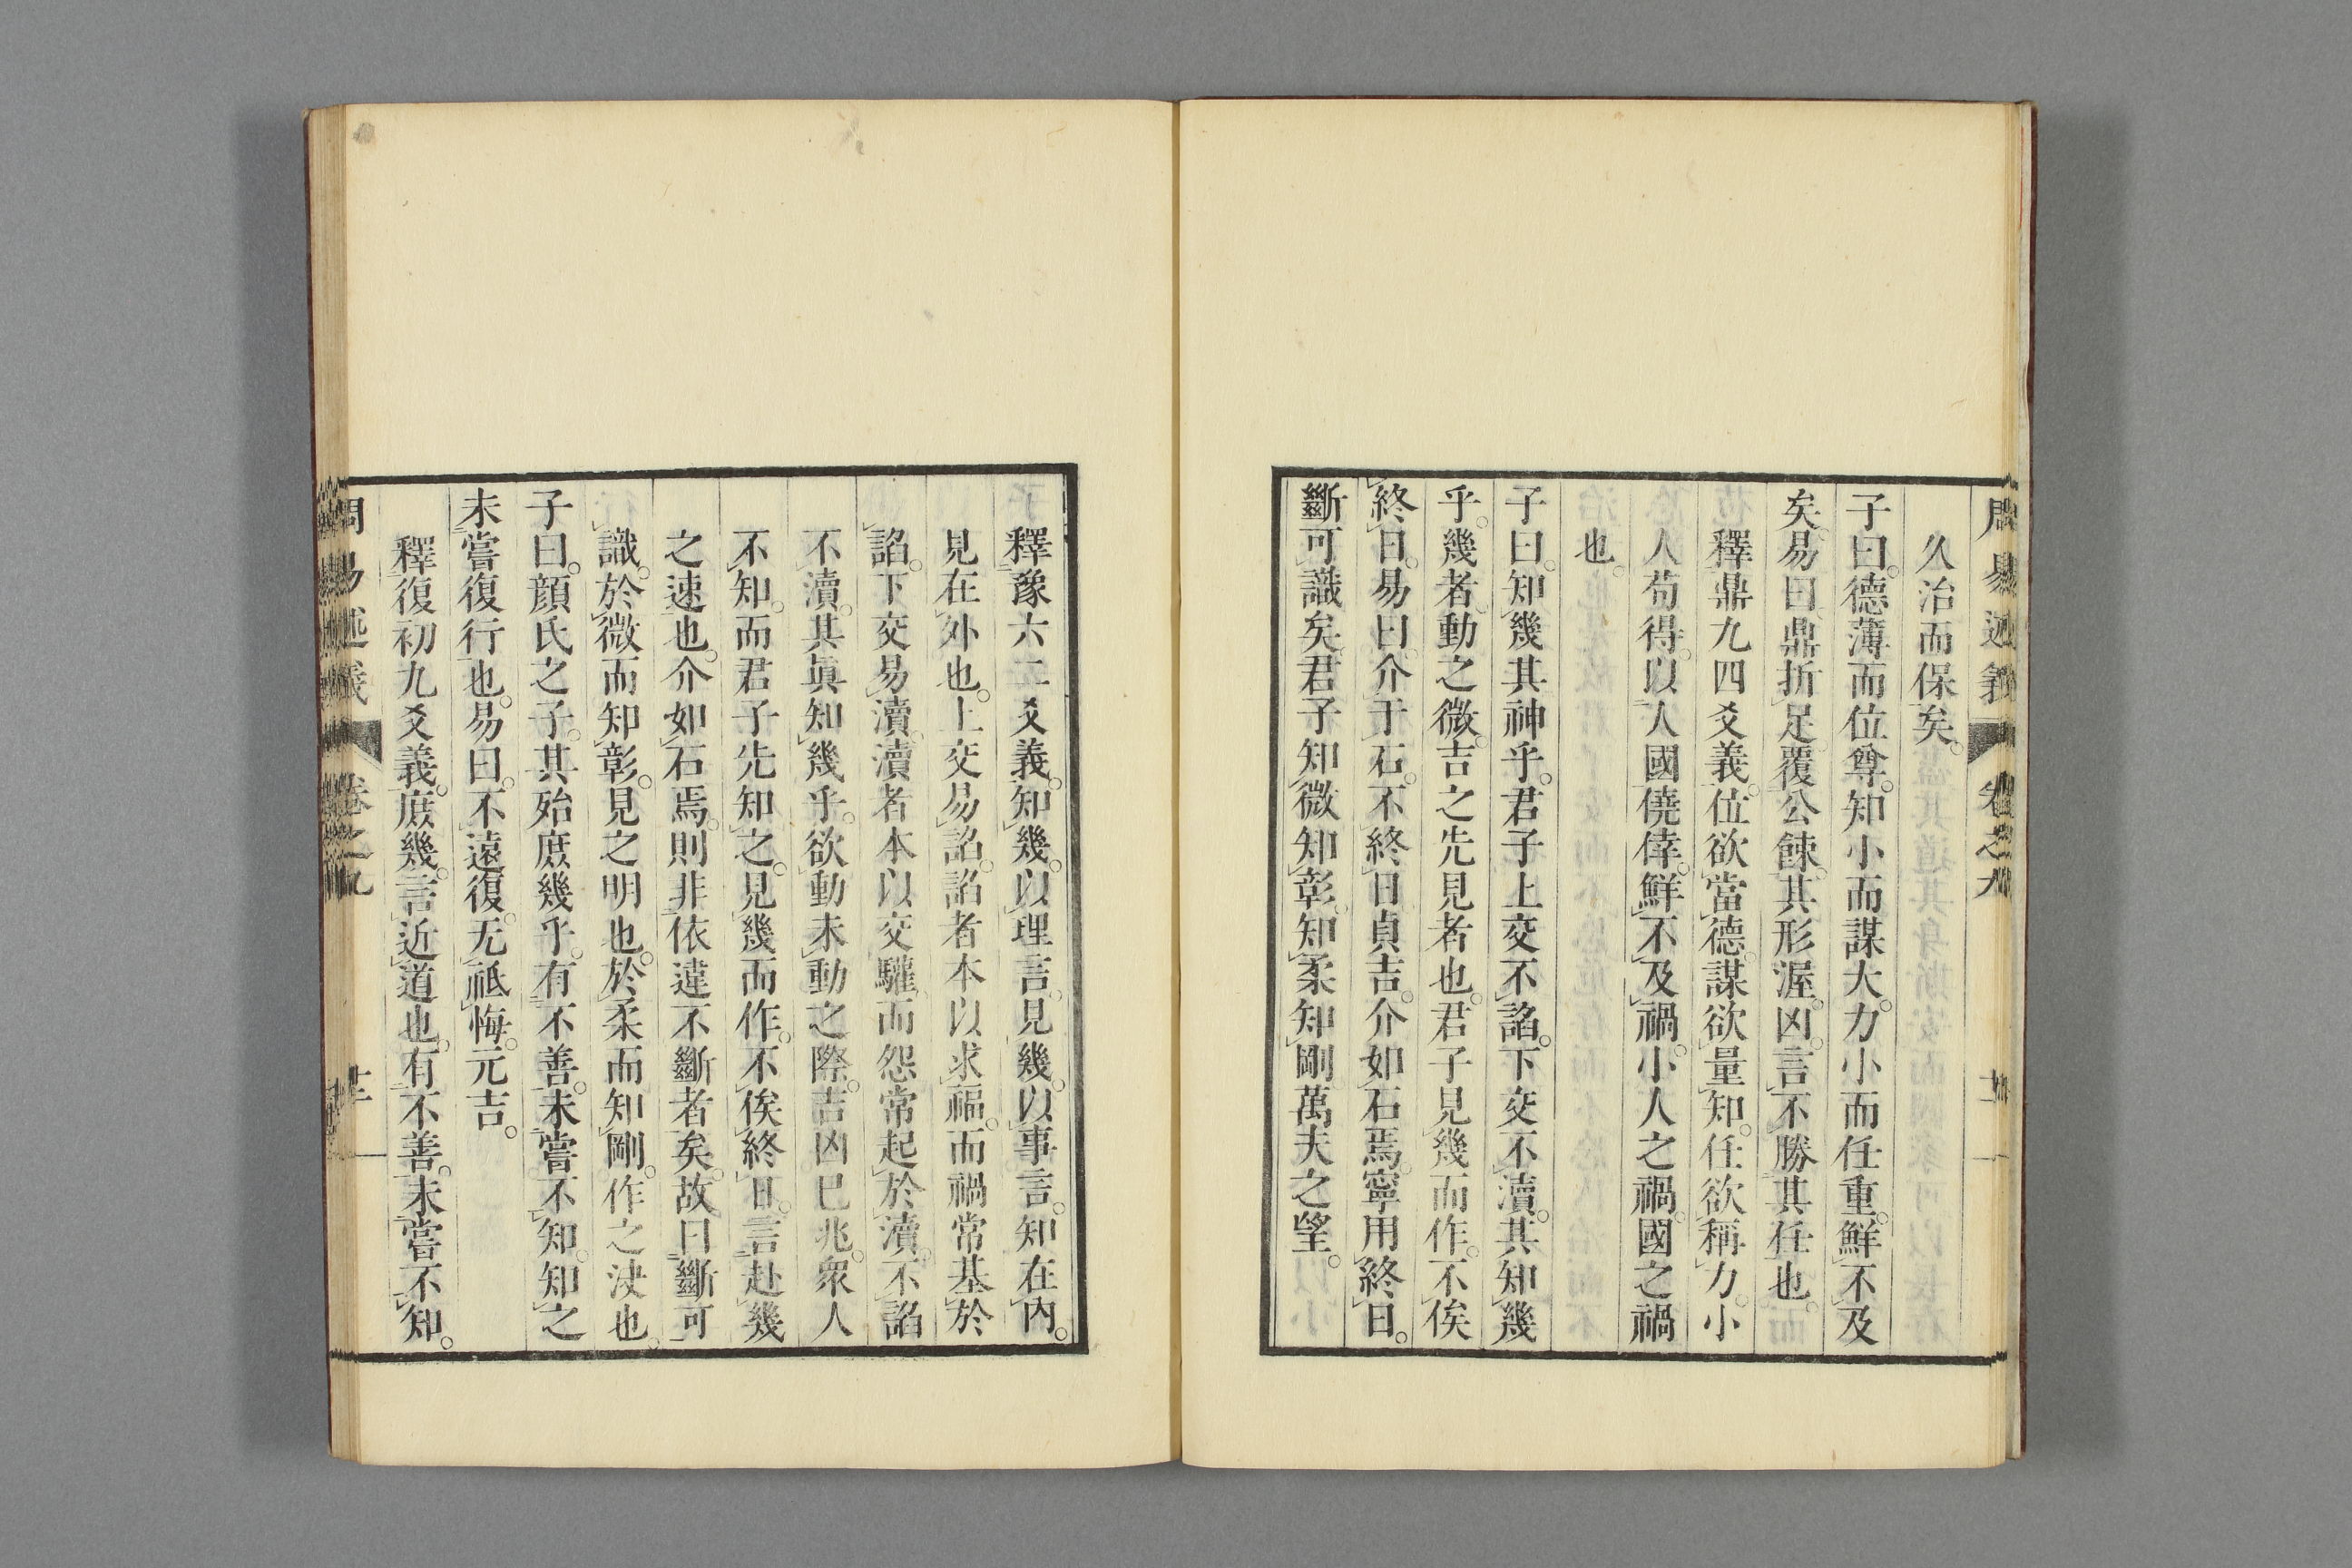 周易述義 卷之九
久治而保矣。
子曰。德薄而位尊。知小而謀大。力小而任重。鮮不及
矣。易曰。鼎折足。覆公餗。其形渥。凶。言不勝其任也。
釋鼎九四爻義。位欲當德。謀欲量知。任欲稱力。小
人苟得。以人國僥倖。鮮不及禍。小人之禍。國之禍
也。
子曰。知幾其神乎。君子上交不諂。下交不瀆。其知幾
乎。幾者。動之微。吉之先見者也。君子見幾而作。不俟
終日。易曰。介于石。不終日。貞吉。介如石焉。寧用終日。
斷可識矣。君子知微知彰。知柔知剛。萬夫之望。
釋豫六二爻義。知幾。以理言。見幾。以事言。知在內。
見在外也。上交易諂。諂者本以求福。而禍常基於
諂。下交易瀆。瀆者本以交驩。而怨常起於瀆。不諂
不瀆。其眞知幾乎。欲動未動之際。吉凶已兆。衆人
不知。而君子先知之。見幾而作。不俟終日。言赴幾
之速也。介如石焉。則非依違不斷者矣。故曰斷可
識。於微而知彰。見之明也。於柔而知剛。作之決也。
子曰。顏氏之子。其殆庶幾乎。有不善。未嘗不知。知之
未嘗復行也。易曰。不遠復。无祗悔。元吉。
釋復初九爻義。庶幾。言近道也。有不善。未嘗不知。
周易述義 卷之九